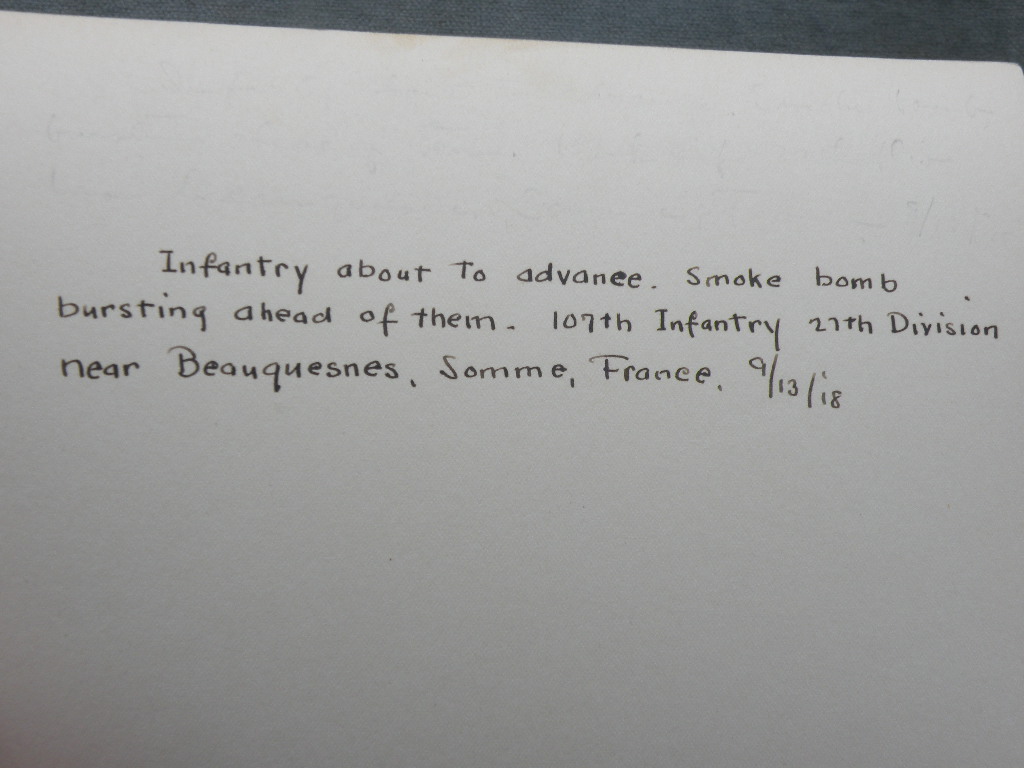 Infantry about To advance. Smoke bomb
bursting ahead of them. 107th Infantry 27th Division
near Beauquesnes, Somme, France. 9/13/18